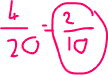 4/20 = 2/10